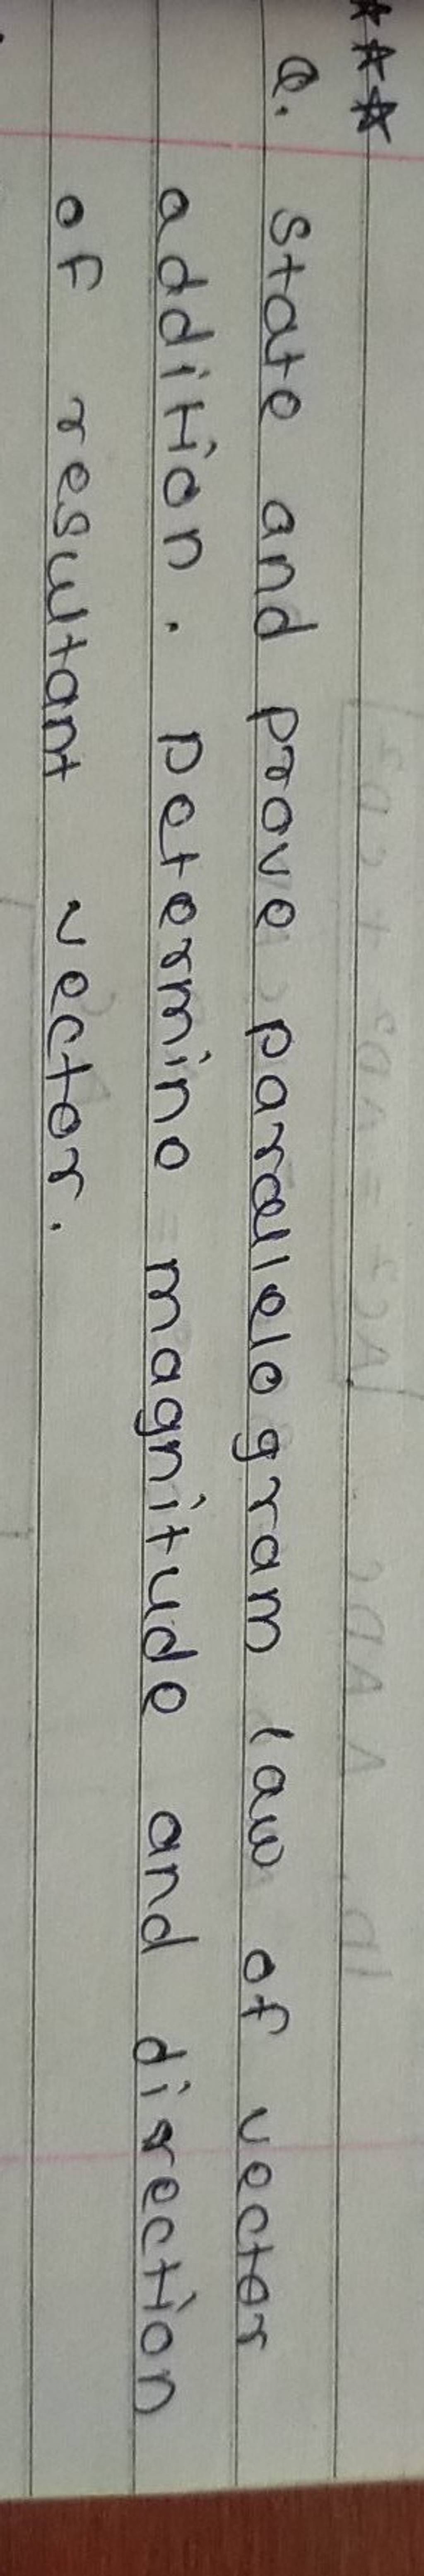 Q. State and prove parallelogram law of vector
addition. Determine magnitude and direction
of resultant vector.